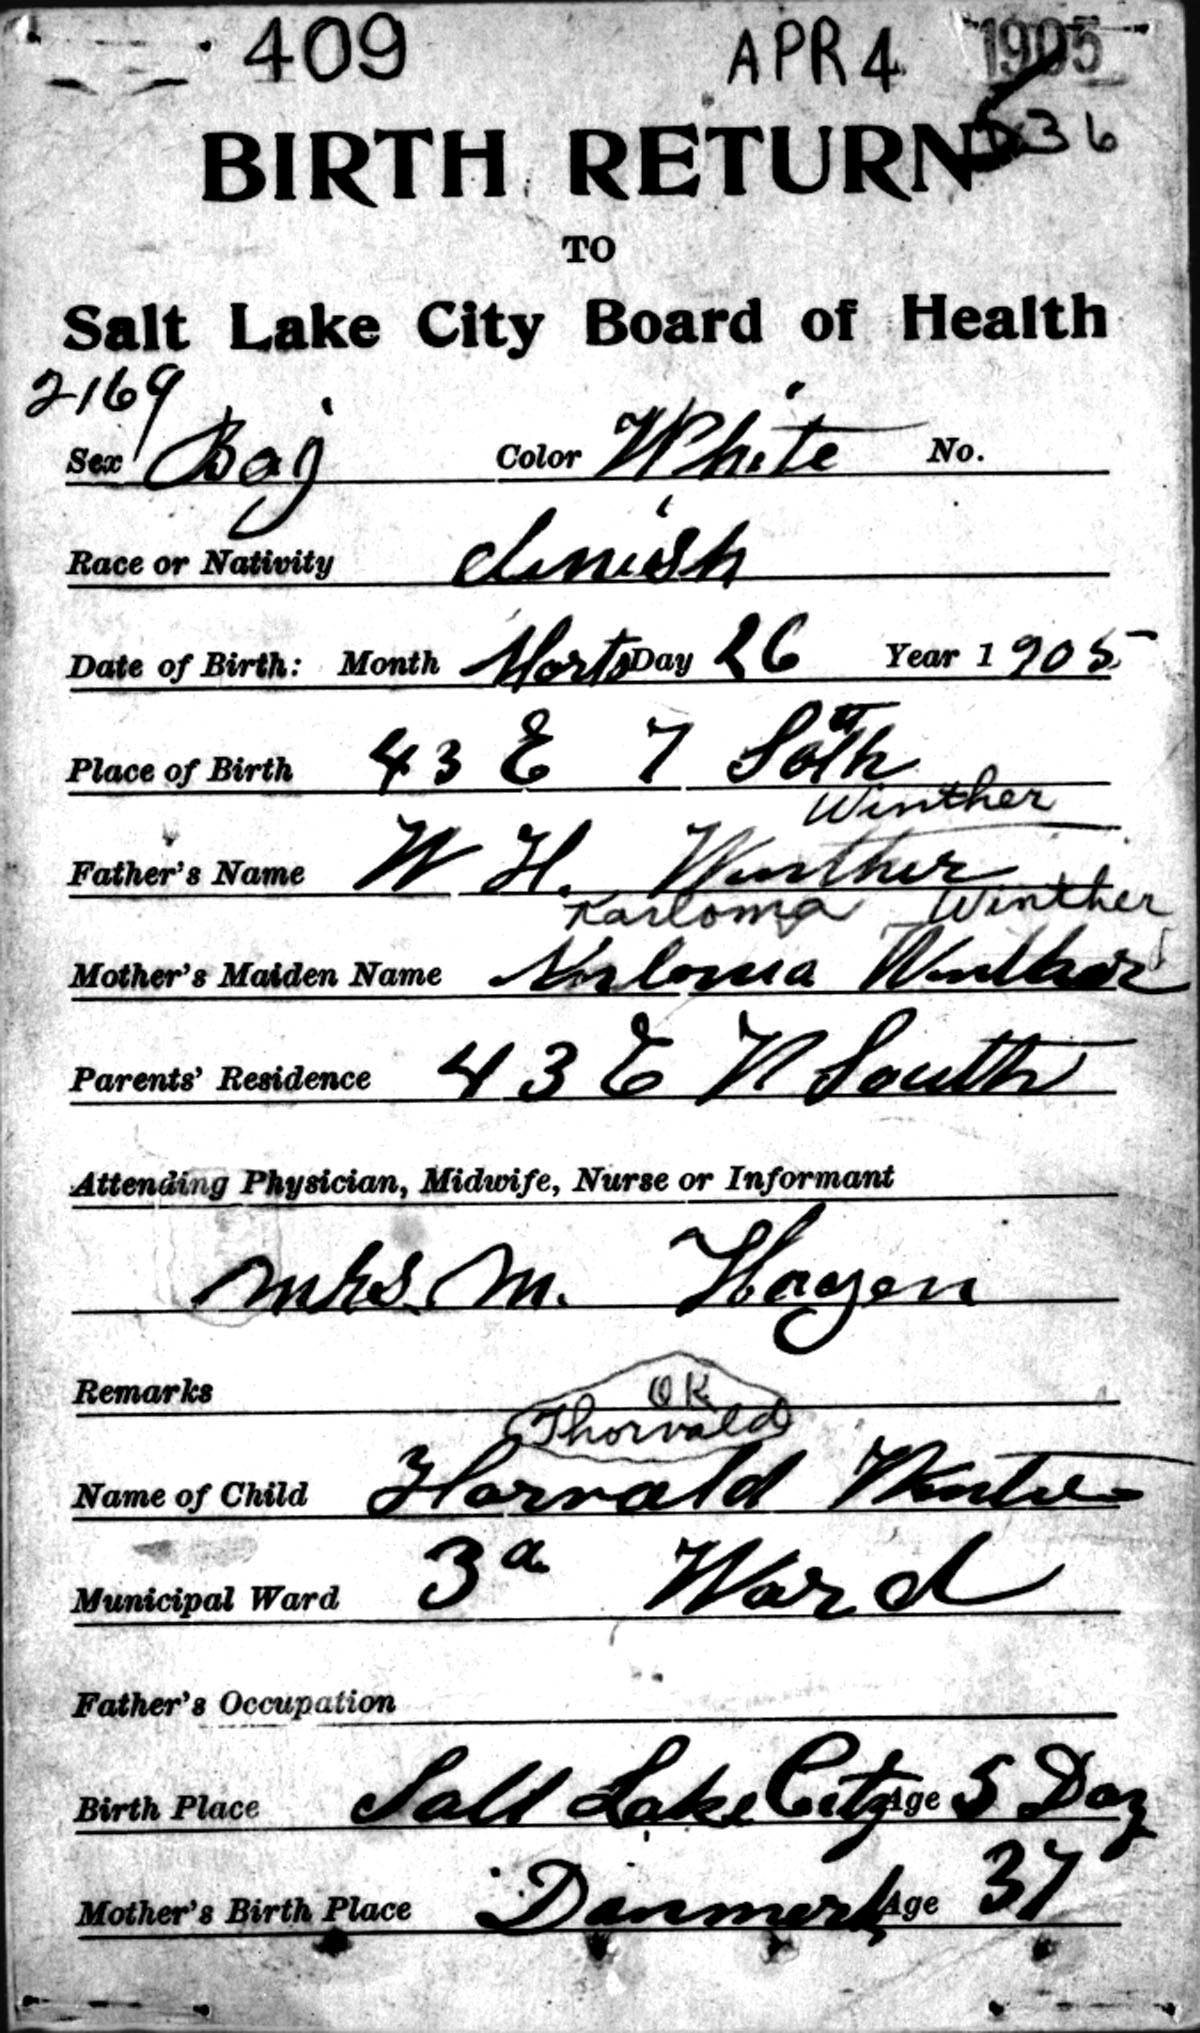 409 APR 4 1905
536
BIRTH RETURN
TO
Salt Lake City Board of Health
2169
Sex Boj Color White No.
Race or Nativity
Date of Birth: Month Marts Day 26 Year 1 905
Place of Birth 43 E 7 Soth
Winther
Father's Name W H. Winther
Karloma Winther
Mother's Maiden Name Winther
Parents' Residence 43 E 7 South
Attending Physician, Midwife, Nurse or Informant
Mrs. M. Hagen
Remarks OK
Thorvald
Name of Child Horvald
Municipal Ward 3 Ward
Father's Occupation
Birth Place Salt Lake City Age 5 Day
Mother's Birth Place Danmerk Age 37